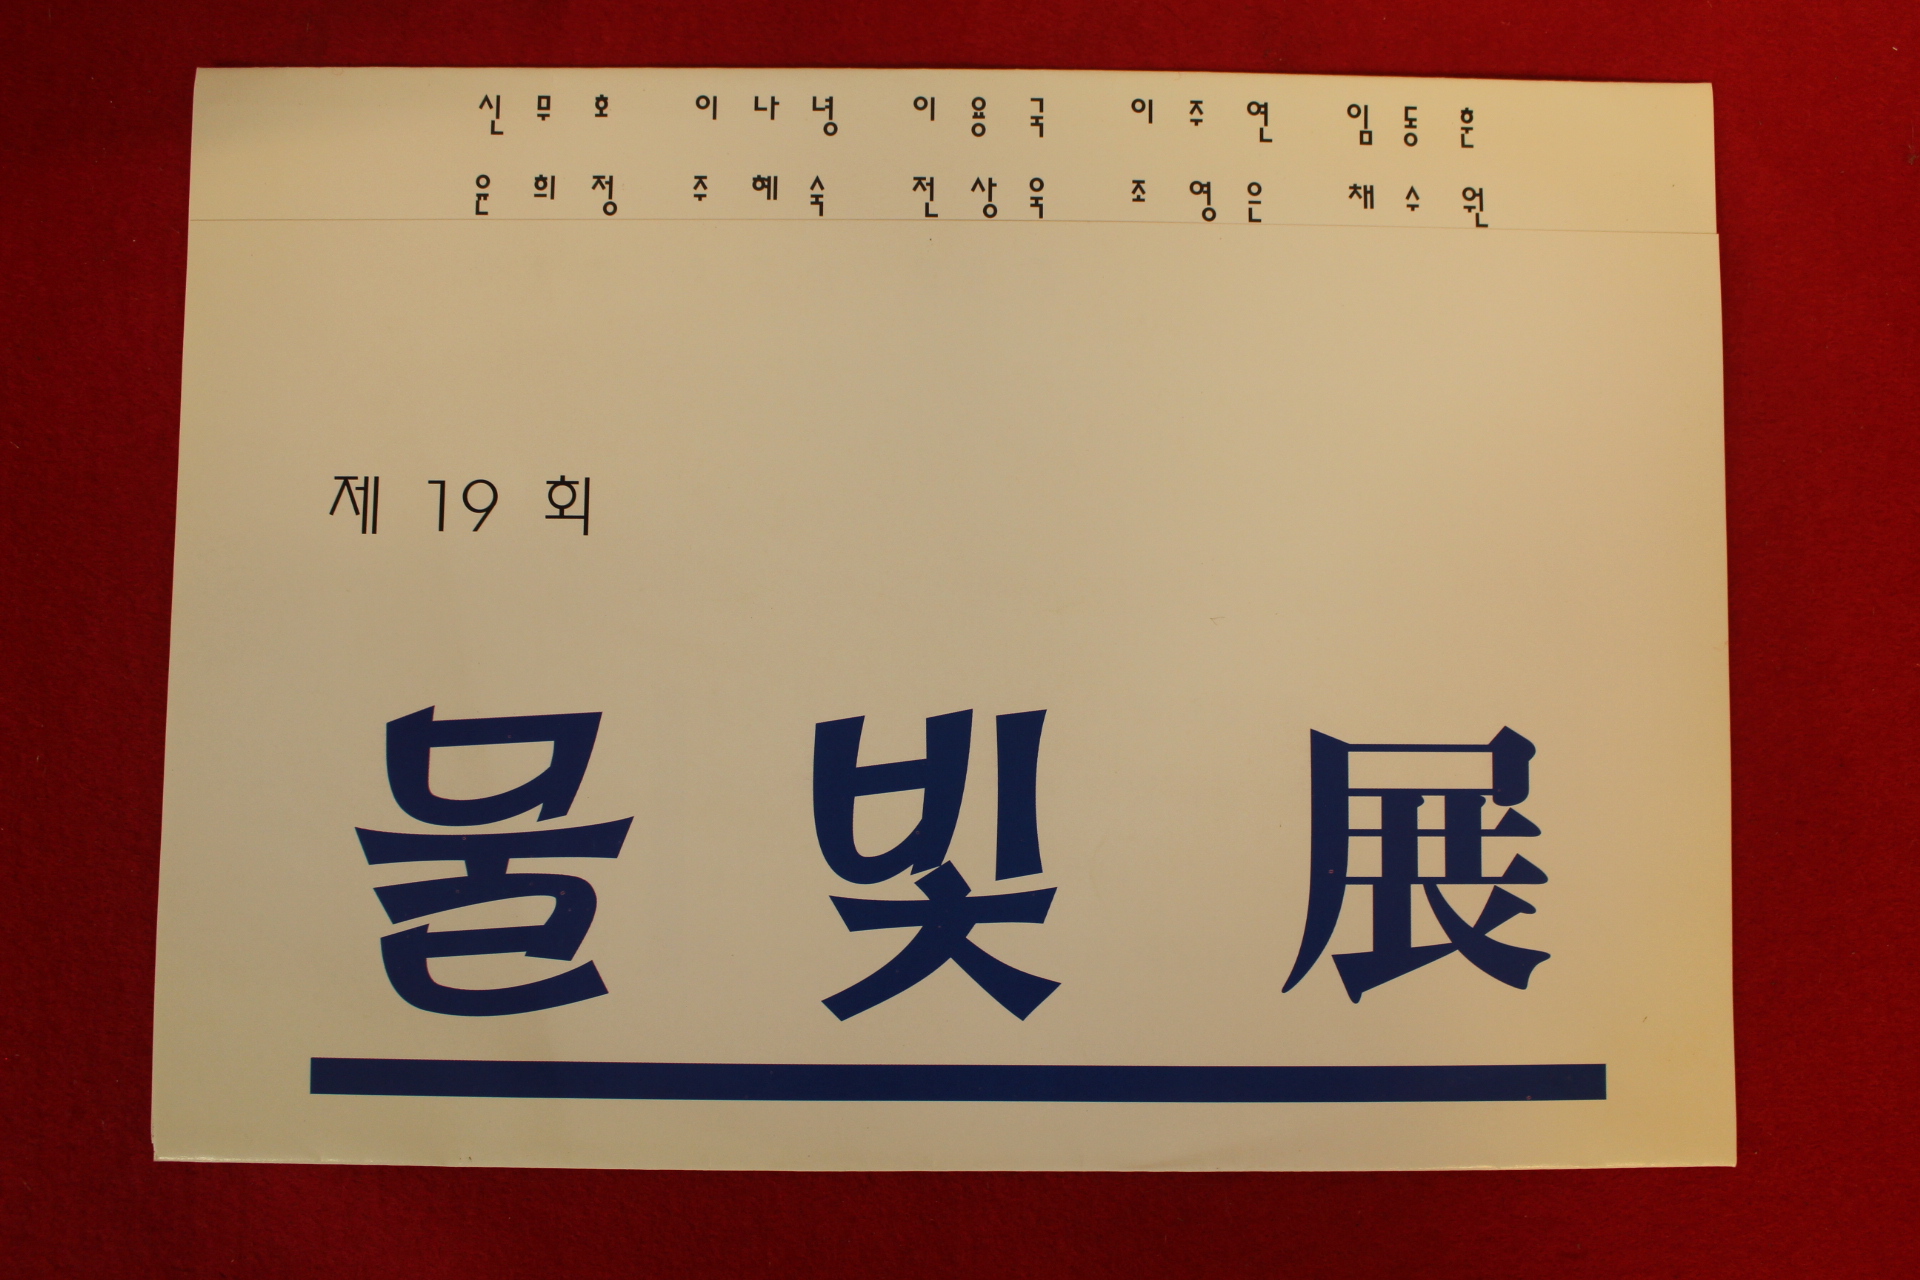 신무호 이나녕 이용국 이주연 임동훈
윤희정 주혜숙 전상욱 조영은 채수원
제 19 회
물빛展